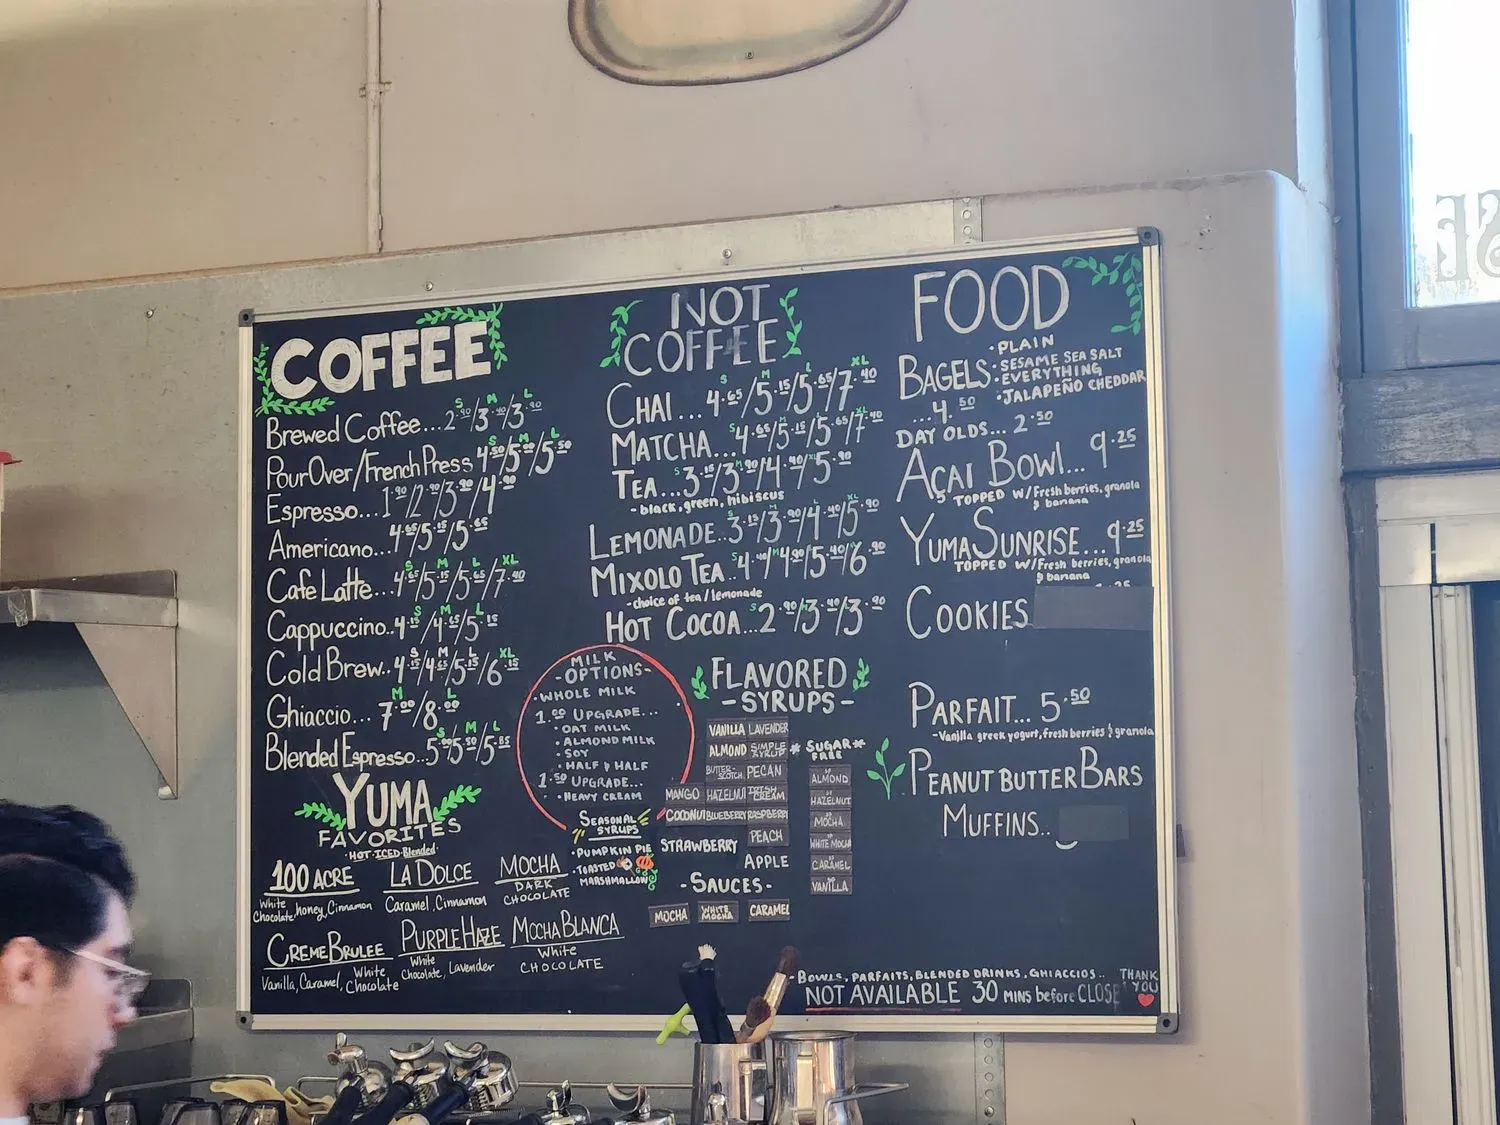 COFFEE
S M L
Brewed Coffee...2.90/3.40/3.90
S M L
Pour Over/French Press 4.50/5.00/5.50
Espresso...1.90/2.90/3.90/4.90
Americano...4.65/5.15/5.65
S M L XL
Cafe Latte...4.65/5.15/5.65/7.40
S M L
Cappuccino..4.15/4.65/5.15
S M L XL
Cold Brew..4.15/4.65/5.15/6.15
M L
Ghiaccio... 7.00/8.00
S M L
Blended Espresso..5.00/5.50/5.85
YUMA
FAVORITES
·HOT·ICED·Blended·
100 ACRE
White Chocolate, honey, Cinnamon
LA DOLCE
Caramel, Cinnamon
MOCHA
DARK
CHOCOLATE
CREME BRULEE
Vanilla, Caramel, White Chocolate
PURPLE HAZE
White Chocolate, Lavender
MOCHA BLANCA
White
CHOCOLATE
NOT
COFFEE
S M L XL
CHAI...4.65/5.15/5.65/7.40
S M L XL
MATCHA...4.65/5.15/5.65/7.40
TEA...3.15/3.90/4.40/5.90
- black, green, hibiscus
LEMONADE..3.15/3.90/4.40/5.90
MIXOLO TEA..4.40/4.90/5.40/6.90
-choice of tea/lemonade
HOT COCOA...2.90/3.40/3.90
MILK
-OPTIONS-
·WHOLE MILK
1.00 UPGRADE...
·OAT MILK
·ALMOND MILK
·SOY
·HALF & HALF
1.50 UPGRADE...
·HEAVY CREAM
SEASONAL
SYRUPS
·PUMPKIN PIE
·TOASTED
MARSHMALLOW
FLAVORED
-SYRUPS-
VANILLA LAVENDER
ALMOND SIMPLE SYRUP
BUTTER-SCOTCH PECAN
MANGO HAZELNUT IRISH CREAM
COCONUT BLUEBERRY RASPBERRY
STRAWBERRY PEACH
APPLE
* SUGAR *
FREE
ALMOND
HAZELNUT
MOCHA
WHITE MOCHA
CARAMEL
VANILLA
-SAUCES-
MOCHA WHITE MOCHA CARAMEL
FOOD
BAGELS
·PLAIN
·SESAME SEA SALT
·EVERYTHING
·JALAPEÑO CHEDDAR
...4.50
DAY OLDS... 2.50
AÇAI BOWL... 9.25
TOPPED W/Fresh berries, granola
& banana
YUMA SUNRISE...9.25
TOPPED W/Fresh berries, granola
& banana
COOKIES
PARFAIT... 5.50
-Vanilla greek yogurt, fresh berries & granola
PEANUT BUTTER BARS
MUFFINS..
-BOWLS, PARFAITS, BLENDED DRINKS, GHIACCIOS..
NOT AVAILABLE 30 MINS before CLOSE
THANK
YOU